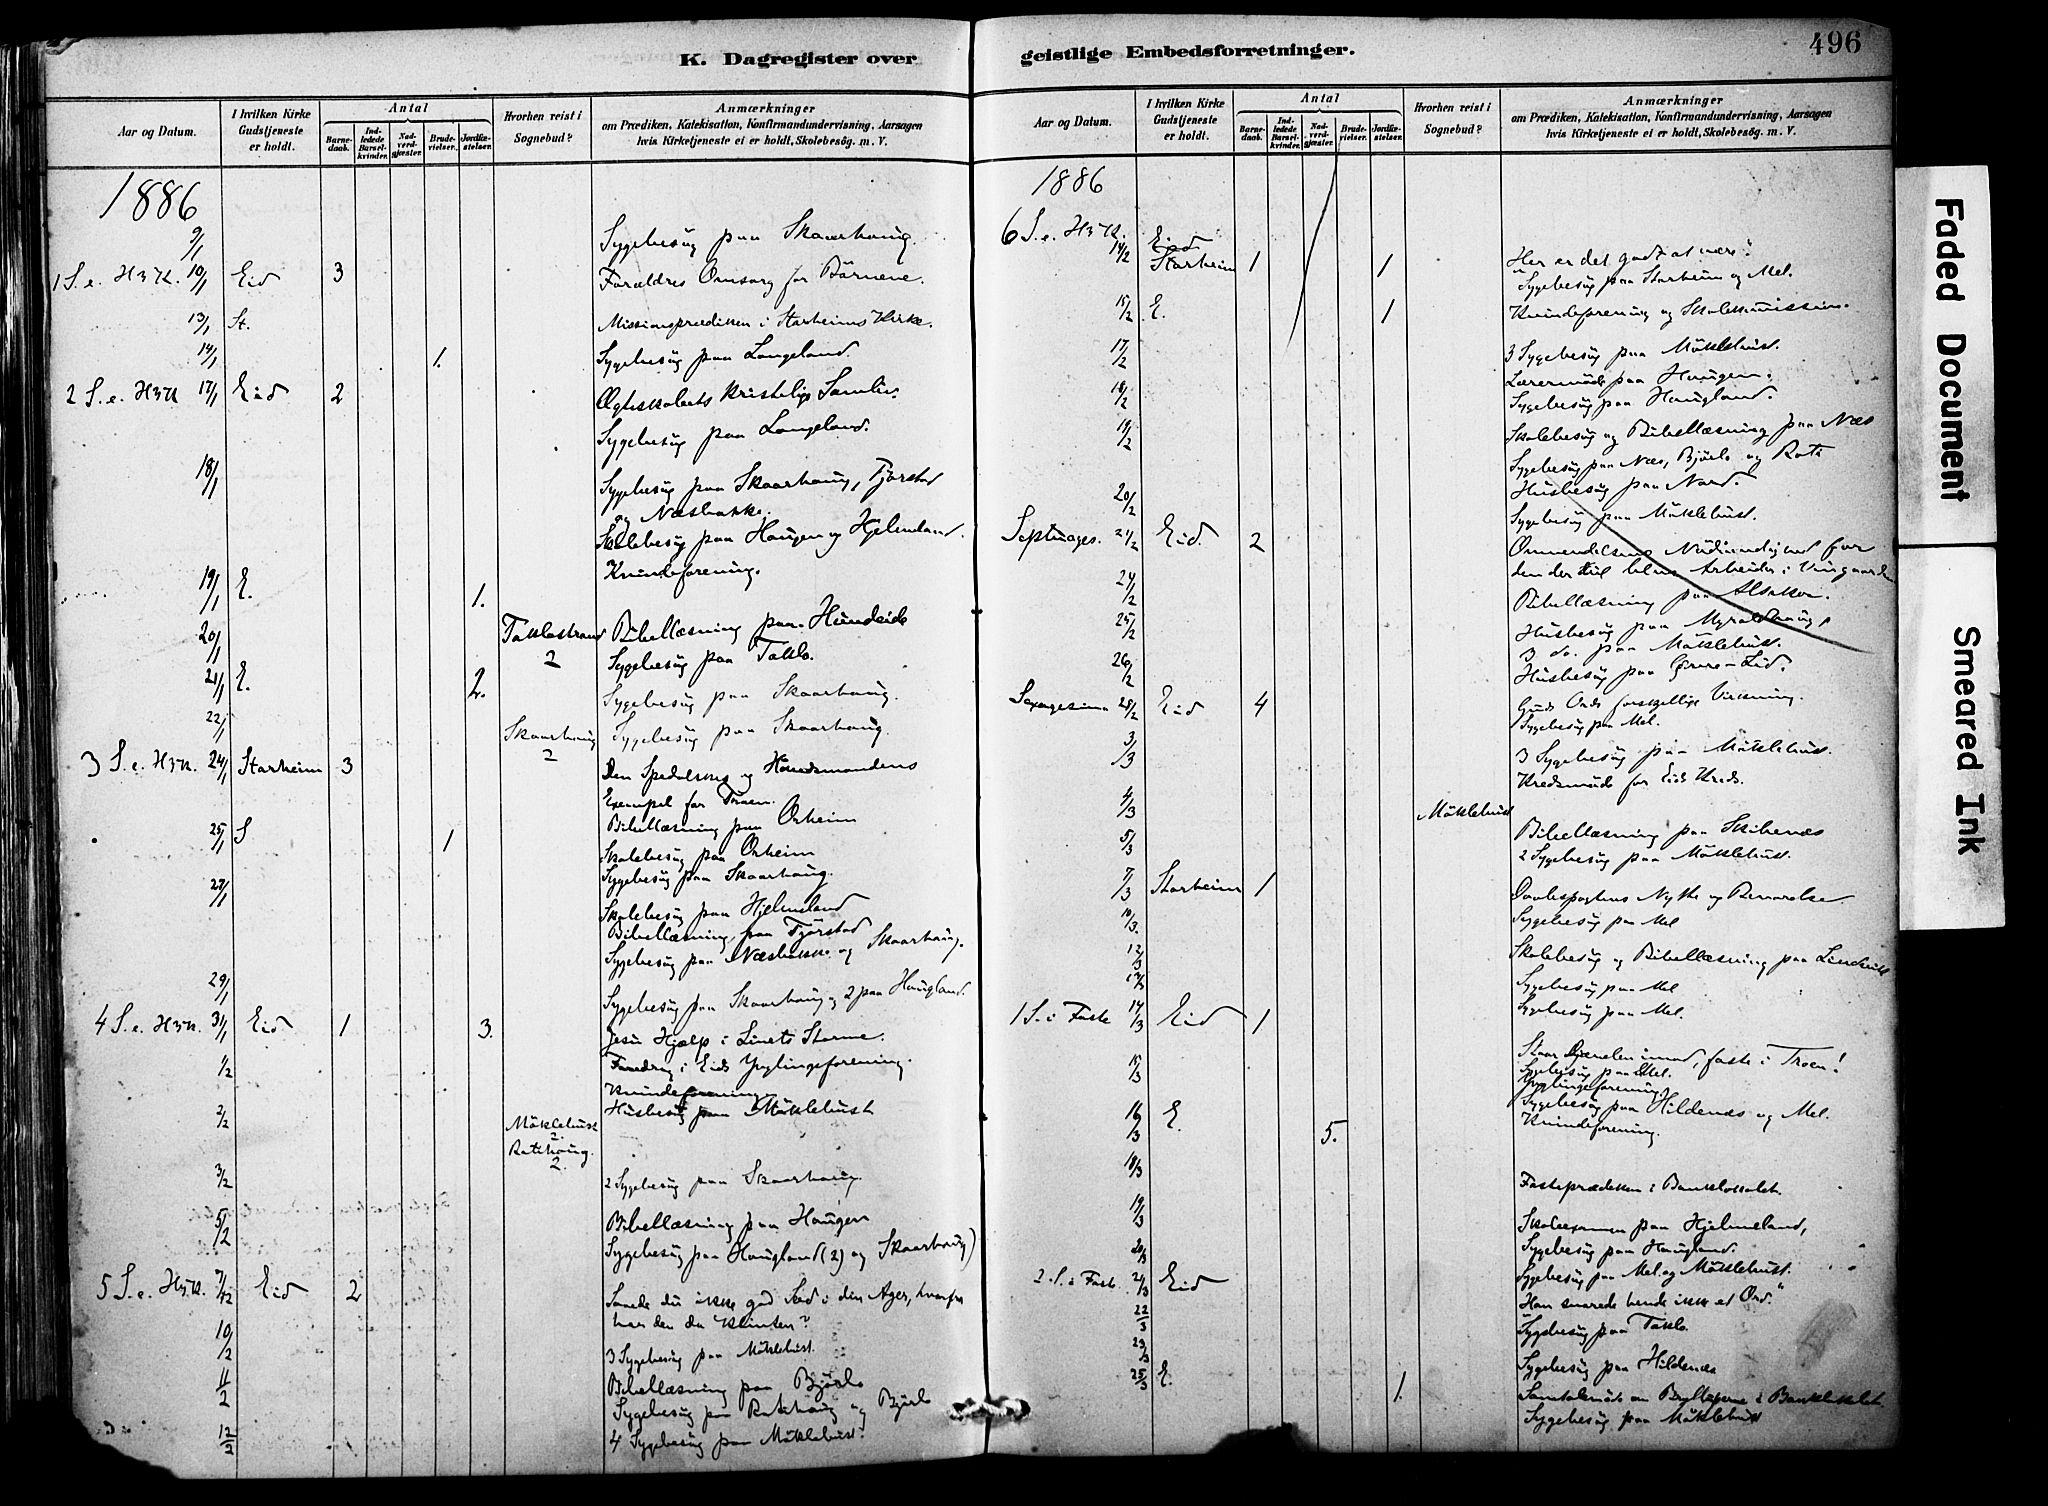 K. Dagregister over geistlige Embedsforretninger.
496
Aar og Datum.
I hvilken Kirke Gudstjeneste er holdt.
Antal
Barne-daab.
Ind-ledede Barsel-kvinder.
Nad-verd-gjæster.
Brude-vielser.
Jordfæ-stelser.
Hvorhen reist i Sognebud?
Anmærkninger
om Prædiken, Katekisation, Konfirmandundervisning, Aarsagen
hvis Kirketjeneste ei er holdt, Skolebesøg. m. V.
1886
9/1 Sygebesøg paa Skaarhaug.
1 S. e. H3K. 10/1 Eid 3 Forældres Omsorg for Börnene.
13/1 St. Missionsprædiken i Starheims Kirke.
14/1 1. Sygebesøg paa Langeland.
2 S. e. H3K 17/1 Eid 2 Ægteskabets kristelige Samliv.
Sygebesøg paa Langeland.
18/1 Sygebesøg paa Skaarhaug, Fjörstad
og Næsbakke.
Skolebesøg paa Haugen og Hjelmeland.
Kvindeforening.
19/1 E. 1.
20/1 Taklestrand 2 Bibellæsning paa Hundeide
Sygebesøg paa Taklo.
21/1 E. 2. Sygebesøg paa Skaarhaug.
22/1 Skaarhaug 2 Sygebesøg paa Skaarhaug.
3 S. e. H3K. 24/1 Starheim 3 Den Spedalske og Høvedsmandens
Exempel for Troen.
Bibellæsning paa Orheim
25/1 S 1 Skolebesøg paa Orheim
Sygebesøg paa Skaarhaug.
27/1 Skolebesøg paa Hjelmeland
Bibellæsning paa Fjörstad
Sygebesøg paa Næsbakke og Skaarhaug.
29/1 Sygebesøg paa Skaarhaug og 2 paa Haugland.
4 S. e. H3K. 31/1 Eid 1 3. Jesu Hjælp i Livets Storme.
1/2 Foredrag i Eids Ynglingeforening.
Kvindeforening
2/2 Möklebust 2. Ratehaug. 2. Husbesøg paa Möklebust
3/2 2 Sygebesøg paa Skaarhaug.
5/2 Bibellæsning paa Haugen
Sygebesøg paa Haugland (2) og Skaarhaug)
5 S. e. H3K. 7/2 Eid 2 Saaede du ikke god Sæd i din Ager, hvorfra
har den da Klinten?
10/2 3 Sygebesøg paa Möklebust.
11/2 Bibellæsning paa Bjørlo
Sygebesøg paa Ratehaug og Bjørlo
12/2 4 Sygebesøg paa Möklebust.
Aar og Datum.
I hvilken Kirke Gudstjeneste er holdt.
Antal
Barne-daab.
Ind-ledede Barsel-kvinder.
Nad-verd-gjæster.
Brude-vielser.
Jordfæ-stelser.
Hvorhen reist i Sognebud?
Anmærkninger
om Prædiken, Katekisation, Konfirmandundervisning, Aarsagen
hvis Kirketjeneste ei er holdt, Skolebesög. m. V.
1886
6 S. e. H3K. 14/2 Starheim 1 1 Her er det godt at være."
Sygebesøg paa Starheim og Mel.
15/2 E. 1 Kvindeforening og Skolekommission.
17/2 3 Sygebesøg paa Möklebust.
Lærermøde paa Haugen.
18/2 Sygebesøg paa Haugland.
19/2 Skolebesøg og Bibellæsning paa Næs
Sygebesøg paa Næs, Bjørlo og Rate
Husbesøg paa Nord.
20/2 Sygebesøg paa Möklebust.
Septuages. 21/2 Eid. 2 Omvendelsens Nødvendighed for
den der vil blive Arbeider i Vingaarden
24/2 Bibellæsning paa
25/2 Husbesøg paa Myroldhaug,
3 do. paa Möklebust.
26/2 Husbesøg paa
Sexagesima 28/2 Eid 4 Guds Ords forskjellige Virkning.
Sygebesøg paa Mel.
3/3 3 Sygebesøg paa Möklebust.
Kredsmøde for Eids Kreds.
4/3 Möklebust
5/3 Bibellæsning paa Skibenæs
2 Sygebesøg paa Möklebust.
7/3 Starheim 1 Daabspagtens Nytte og Bevarelse
10/3. Sygebesøg paa Mel
12/3 Skolebesøg og Bibellæsning paa
Sygebesøg paa Mel
1 S. i Faste 14/3 Eid 1 Sygebesøg paa Mel.
Staar Djævelen imod, faste i Troen!
15/3 Sygebesøg paa Mel.
Ynglingeforening
16/3 E. 5. Sygebesøg paa Hildenæs og Mel.
Kvindeforening.
18/3 Fasteprædiken i Banklokalet.
19/3 Skoleexamen paa Hjelmeland,
Sygebesøg paa Haugland.
20/3 Sygebesøg paa Mel og Möklebust.
2. S. i Faste. 21/3 Eid Han svarede hende ikke et Ord."
22/3 Sygebesøg paa Taklo.
23/3 Sygebesøg paa Hildenæs
25/3 E. 1. Samtalemøde i Banklokalet
Sygebesøg paa Möklebust
Faded Document
Smeared Ink